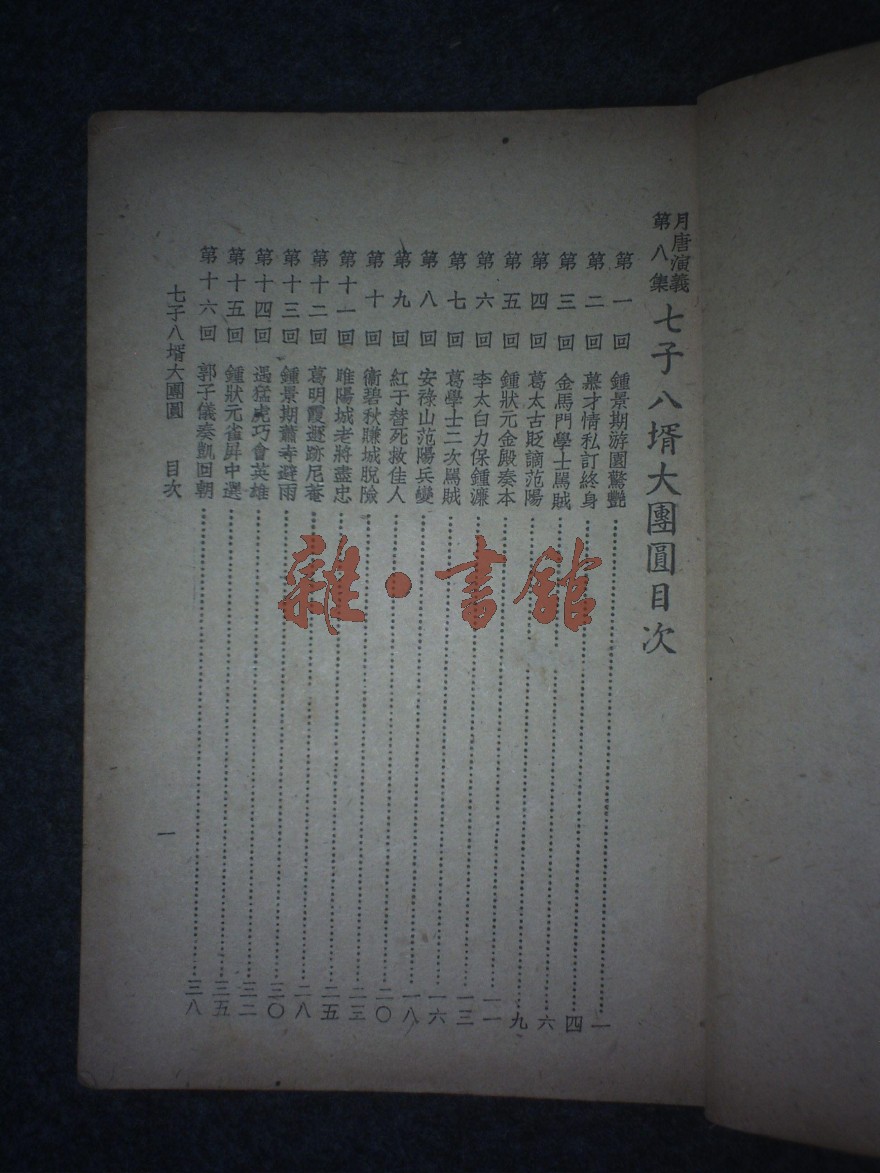 月唐演義
第八集
七子八壻大團圓目次
第一回 鍾景期游園驚艷 一
第二回 慕才情私訂終身 四
第三回 金馬門學士罵賊 六
第四回 葛太古貶謫范陽 九
第五回 鍾狀元金殿奏本 一一
第六回 李太白力保鍾濂 一三
第七回 葛學士二次罵賊 一六
第八回 安祿山范陽兵變 一八
第九回 紅于替死救佳人 二〇
第十回 衛碧秋賺城脫險 二三
第十一回 睢陽城老將盡忠 二五
第十二回 葛明霞遯跡尼菴 二八
第十三回 鍾景期蕭寺避雨 三〇
第十四回 遇猛虎巧會英雄 三二
第十五回 鍾狀元雀屏中選 三五
第十六回 郭子儀奏凱回朝 三八
七子八壻大團圓 目次
一
雜·書館